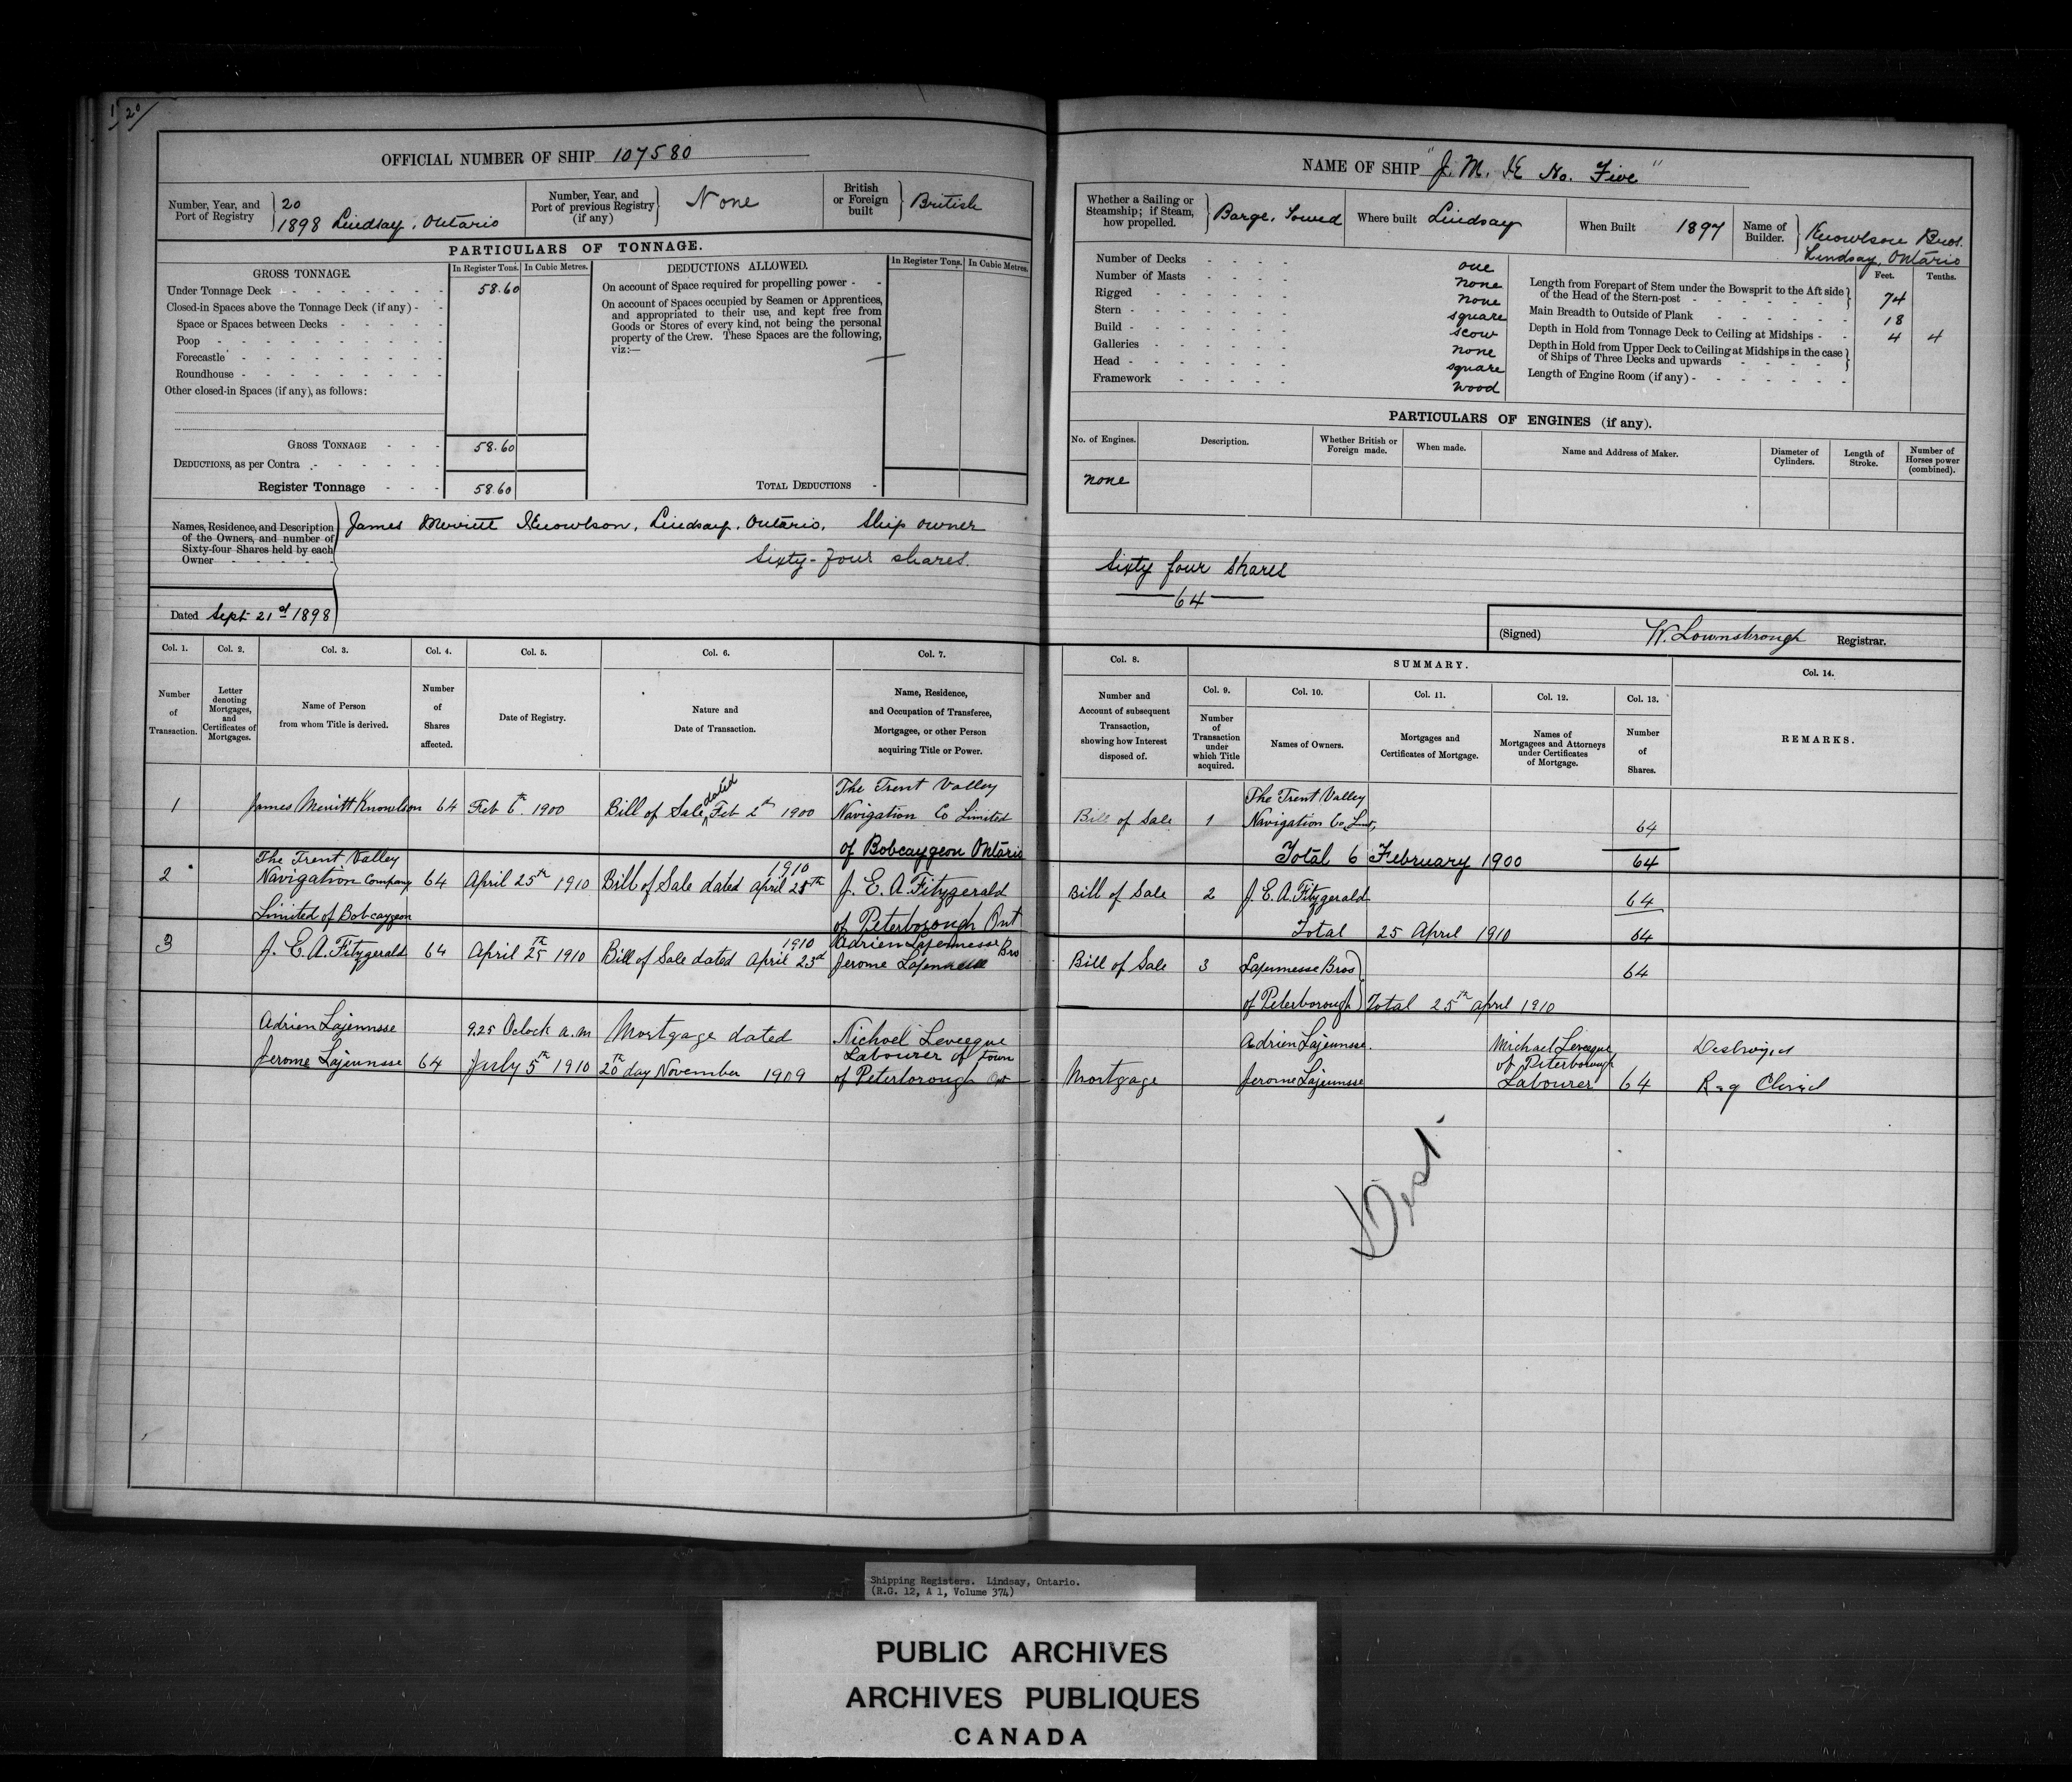 1/20
OFFICIAL NUMBER OF SHIP 107580
Number, Year, and Port of Registry } 20 1898 Lindsay, Ontario
Number, Year, and Port of previous Registry (if any) } None
British or Foreign built } British
PARTICULARS OF TONNAGE.
GROSS TONNAGE. In Register Tons. In Cubic Metres.
Under Tonnage Deck 58.60
Closed-in Spaces above the Tonnage Deck (if any)
Space or Spaces between Decks
Poop
Forecastle
Roundhouse
Other closed-in Spaces (if any), as follows:
GROSS TONNAGE 58.60
DEDUCTIONS, as per Contra
Register Tonnage 58.60
DEDUCTIONS ALLOWED. In Register Tons. In Cubic Metres.
On account of Space required for propelling power
On account of Spaces occupied by Seamen or Apprentices,
and appropriated to their use, and kept free from
Goods or Stores of every kind, not being the personal
property of the Crew. These Spaces are the following,
viz:—
TOTAL DEDUCTIONS
Names, Residence, and Description
of the Owners, and number of
Sixty-four Shares held by each
Owner
James Merritt Knowlson, Lindsay, Ontario, Ship owner
Sixty-four shares.
Dated Sept 21st 1898
Col. 1. Number of Transaction.
Col. 2. Letter denoting Mortgages, and Certificates of Mortgages.
Col. 3. Name of Person from whom Title is derived.
Col. 4. Number of Shares affected.
Col. 5. Date of Registry.
Col. 6. Nature and Date of Transaction.
Col. 7. Name, Residence, and Occupation of Transferee, Mortgagee, or other Person acquiring Title or Power.
1 James Merritt Knowlson 64 Feb 6th 1900 Bill of Sale dated Feb 2d 1900 The Trent Valley
Navigation Co Limited
of Bobcaygeon Ontario
2 The Trent Valley
Navigation Company 64 April 25th 1910 Bill of Sale dated April 25th 1910 J. E. A. Fitzgerald
Limited of Bobcaygeon of Peterborough Ont
3 J. E. A. Fitzgerald 64 April 25th 1910 Bill of Sale dated April 23d 1910 Adrien Lajeunesse
Jerome Lajeunesse Bro
Adrien Lajeunsse 9.25 Oclock a.m Mortgage dated Nichoel Levecque
Jerome Lajeunsse 64 July 5th 1910 20th day November 1909 Labourer of town
of Peterborough Ont
NAME OF SHIP "J. M. K No. Five"
Whether a Sailing or Steamship; if Steam, how propelled. } Barge, Towed
Where built Lindsay
When Built 1897
Name of Builder. } Knowlson Bros. Lindsay, Ontario
Number of Decks one
Number of Masts none
Rigged none
Stern square
Build scow
Galleries none
Head square
Framework wood
Feet. Tenths.
Length from Forepart of Stem under the Bowsprit to the Aft side
of the Head of the Stern-post 74
Main Breadth to Outside of Plank 18
Depth in Hold from Tonnage Deck to Ceiling at Midships 4 4
Depth in Hold from Upper Deck to Ceiling at Midships in the case
of Ships of Three Decks and upwards
Length of Engine Room (if any)
PARTICULARS OF ENGINES (if any).
No. of Engines. Description. Whether British or Foreign made. When made. Name and Address of Maker. Diameter of Cylinders. Length of Stroke. Number of Horses power (combined).
none
Sixty four shares
64
(Signed) W. Lownsbrough Registrar.
Col. 8. Number and Account of subsequent Transaction, showing how Interest disposed of.
SUMMARY.
Col. 9. Number of Transaction under which Title acquired.
Col. 10. Names of Owners.
Col. 11. Mortgages and Certificates of Mortgage.
Col. 12. Names of Mortgagees and Attorneys under Certificates of Mortgage.
Col. 13. Number of Shares.
Col. 14. REMARKS.
Bill of Sale 1 The Trent Valley
Navigation Co Lmt, 64
Total 6 February 1900 64
Bill of Sale 2 J. E. A. Fitzgerald 64
Total 25 April 1910 64
Bill of Sale 3 Lajeunesse Bros 64
of Peterborough Total 25th april 1910
Adrien Lajeunsse. Michael Levecque Destroyed
of Peterborough
Mortgage Jerome Lajeunsse Labourer 64 Reg Closed
Dest.
Shipping Registers. Lindsay, Ontario.
(R.G. 12, A 1, Volume 374)
PUBLIC ARCHIVES
ARCHIVES PUBLIQUES
CANADA